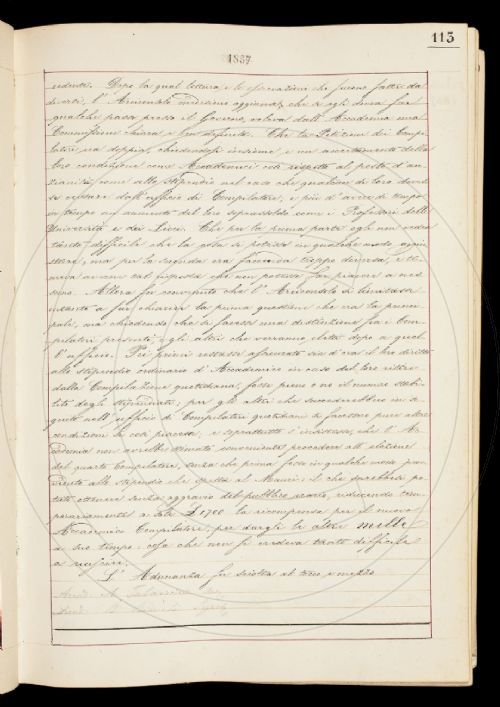 113
1857
cedenti. Dopo la qual lettura, e le osservazioni che furono fatte da
diversi, l'Arciconsolo medesimo aggiunse che se egli dovea far
qualche passo presso il Governo, voleva dall'Accademia una
Commissione chiara e ben definita. Che la Petizione dei Compi-
latori era doppia, chiedendosi insieme, e un accertamento della
loro condizione come Accademici così rispetto al posto d'an-
zianità, come allo stipendio nel caso che qualcuno di loro doves-
se cessare dall'ufficio di Compilatore; e più d'avere di tempo
in tempo un aumento del loro soprassoldo come i Professori delle
Università e dei Licei. Che per la prima parte egli non crede-
difficile che la cosa si potesse in qualche modo
ma per la seconda era faccenda troppo diversa, e
una tal risposta che non poteva far piacere a nes-
suno. Allora fu convenuto che l'Arciconsolo si limitasse
intanto a far chiarire la prima questione che era la princi-
pale, ma chiedendo che si facesse una distinzione fra i Com-
pilatori presenti e gli altri che verranno eletti dopo a quel-
l'ufficio. Pei primi restasse assicurato sin d'ora il loro diritto
allo stipendio ordinario d'Accademico in caso del loro ritiro
dalla Compilazione quotidiana, fosse pieno o no il numero stabi-
lito degli stipendiati; per gli altri che succederebbero in se-
guito nell'ufficio di Compilatori quotidiani si facessero pure altre
condizioni se così piacesse; e soprattutto s'insistesse che l'Ac-
cademia non avrebbe stimato conveniente procedere all'elezione
del quarto Compilatore, senza che prima fosse in qualche modo prov-
veduto allo stipendio che spetta al Manni: il che sarebbesi po-
tuto ottenere senza aggravio del pubblico erario, riducendo tem-
porariamente a sole £ 1700 la ricompensa per il nuovo
Accademico Compilatore, per dargli le altre mille
a suo tempo: cosa che non si credeva tanto difficile
a riuscire.
L'Adunanza fu sciolta al tocco e mezzo